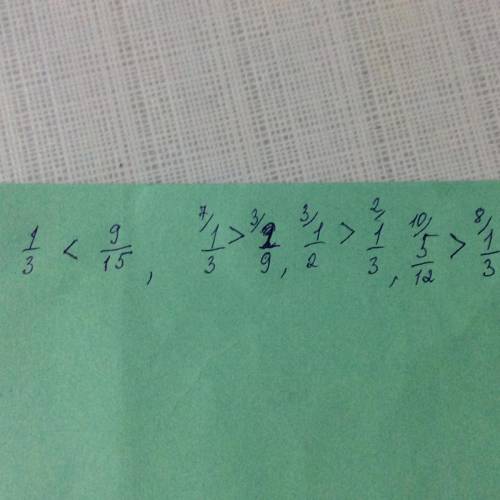 1/3 < 9/15, ⁷⁄1/3 > ³⁄2/9, ³⁄1/2 > ²⁄1/3, ¹⁰⁄5/12 > ⁸⁄1/3